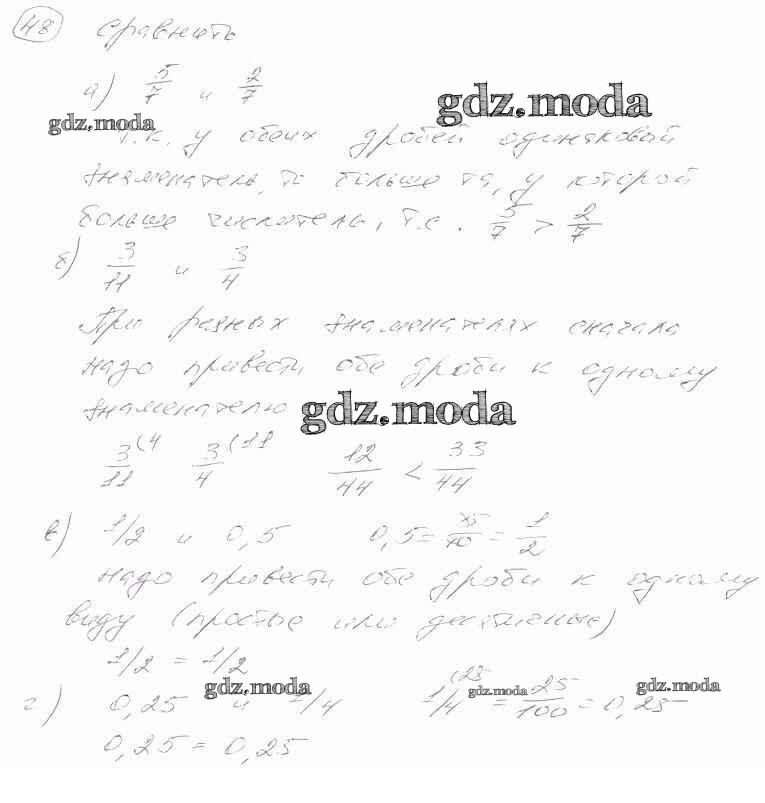 48 Сравнить
а) 5/7 и 2/7
gdz.moda
gdz.moda
т.к. у обеих дробей одинаковый
знаменатель, то больше та, у которой
больше числитель, т.е. 5/7 > 2/7
б) 3/11 и 3/4
При разных знаменателях сначала
надо привести обе дроби к одному
знаменателю
gdz.moda
3/11 (4 3/4 (11 12/44 < 33/44
в) 1/2 и 0,5 0,5 = 5/10 = 1/2
надо привести обе дроби к одному
виду (простые или десятичные)
1/2 = 1/2
gdz.moda gdz.moda gdz.moda
г) 0,25 и 1/4 1/4 (25 = 25/100 = 0,25
0,25 = 0,25